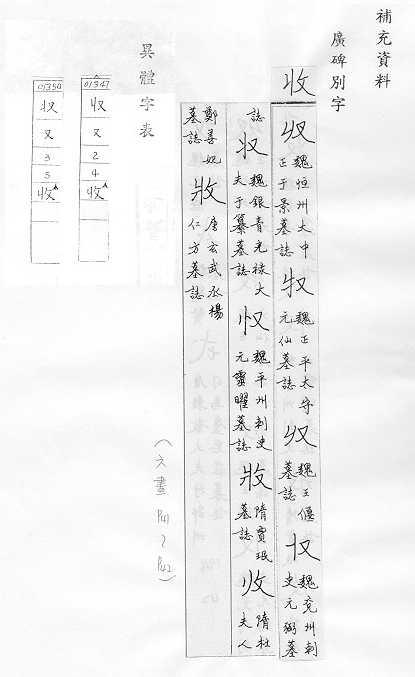 補充資料
廣碑別字
收
魏恒州大中正于景墓誌
魏正平太守元仙墓誌
収
魏王偃墓誌
収
魏兗州刺史元弼墓
誌
魏銀青光祿大夫于纂墓誌
魏平州刺史元靈曜墓誌
隋賈珉墓誌
收
隋杜夫人
鄭善妃墓誌
唐玄武丞楊仁方墓誌
異體字表
01347
収
又
2
4
收
01350
収
又
3
5
收
(文畫 P41~P42)